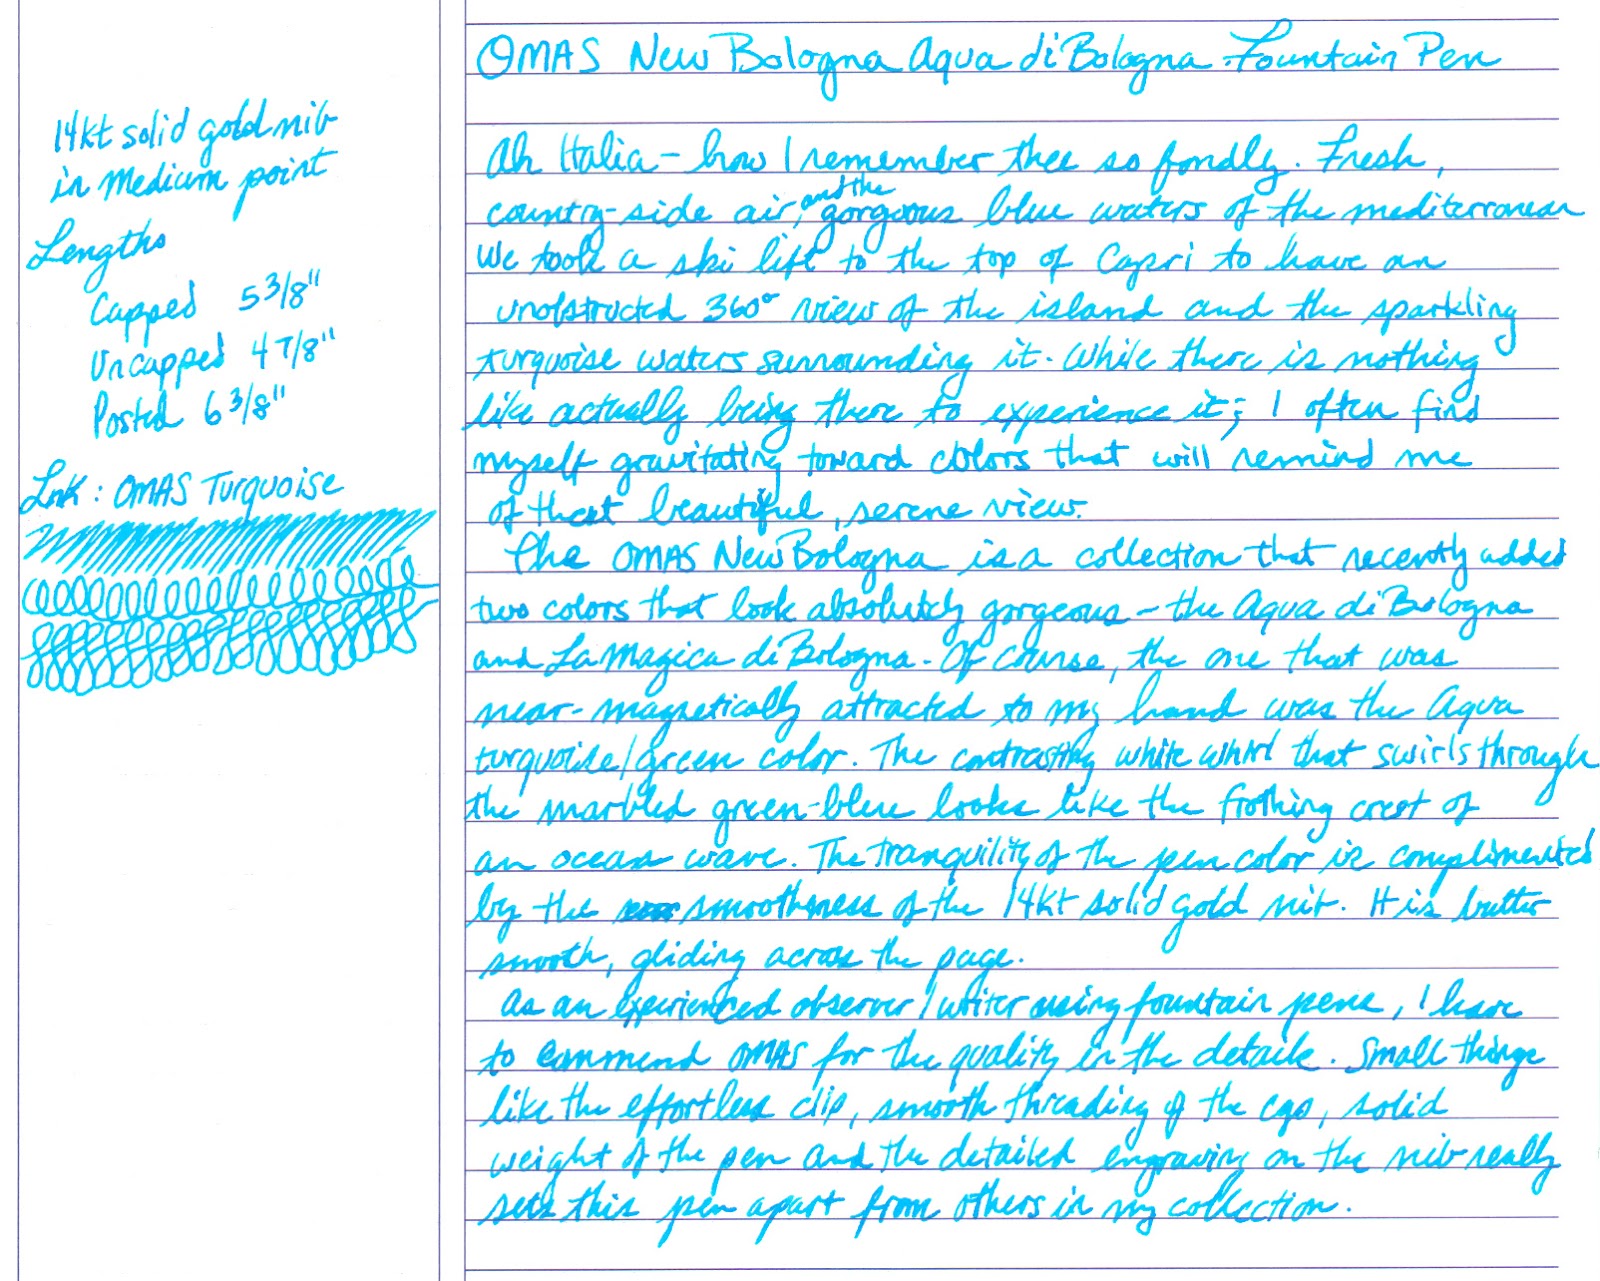 OMAS New Bologna Aqua di Bologna Fountain Pen
14kt solid gold nib
in medium point
Lengths
Capped 5 3/8"
Uncapped 4 7/8"
Posted 6 3/8"
Ink: OMAS Turquoise
Ah Italia - how I remember thee so fondly. Fresh,
country-side air, and the gorgeous blue waters of the mediterranean
We took a ski lift to the top of Capri to have an
unobstructed 360° view of the island and the sparkling
turquoise waters surrounding it. While there is nothing
like actually being there to experience it; I often find
myself gravitating toward colors that will remind me
of that beautiful, serene view.
The OMAS New Bologna is a collection that recently added
two colors that look absolutely gorgeous - the Aqua di Bologna
and La Magica di Bologna. Of course, the one that was
near-magnetically attracted to my hand was the Aqua
turquoise/green color. The contrasting white whirl that swirls through
the marbled green-blue looks like the frothing crest of
an ocean wave. The tranquility of the pen color is complimented
by the smoothness of the 14kt solid gold nib. It is butter
smooth, gliding across the page.
As an experienced observer/writer using fountain pens, I have
to commend OMAS for the quality in the details. Small things
like the effortless clip, smooth threading of the cap, solid
weight of the pen and the detailed engraving on the nib really
sets this pen apart from others in my collection.